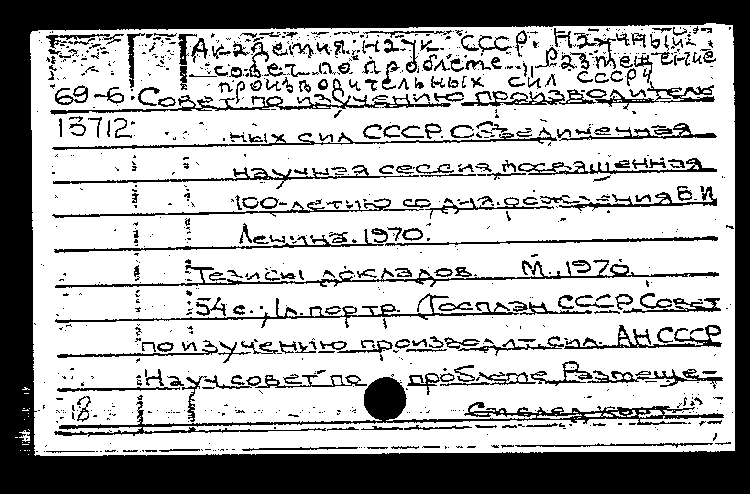 Академия наук СССР. Научный
совет по проблеме "Размещение
производительных сил СССР"
69-6 Совет по изучению производитель
13712 ных сил СССР. Объединенная
научная сессия, посвященная
100-летию со дня рождения В.И.
Ленина. 1970.
Тезисы докладов. М., 1970.
54 с.; 1л. портр. (Госплан СССР. Совет
по изучению производит. сил. АН СССР
Науч. совет по проблеме "Размеще-
18 См. след. карт.